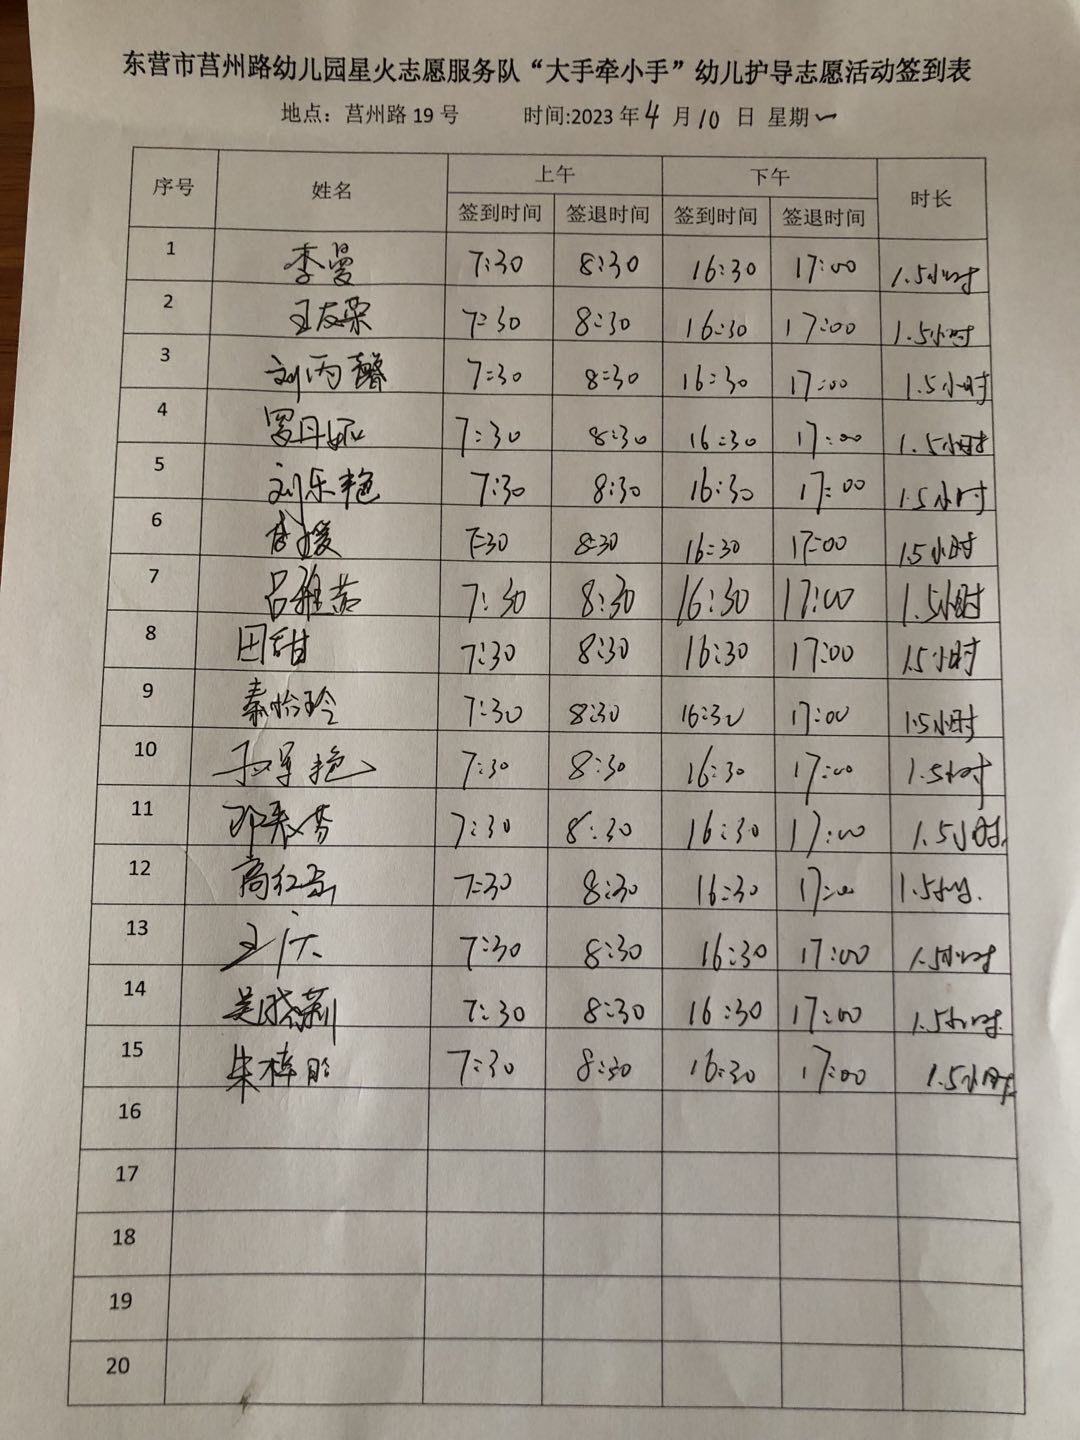 东营市莒州路幼儿园星火志愿服务队“大手牵小手”幼儿护导志愿活动签到表
地点：莒州路 19 号 时间:2023 年 4 月 10 日 星期一
序号 姓名 上午 下午 时长
签到时间 签退时间 签到时间 签退时间
1 李曼 7:30 8:30 16:30 17:00 1.5小时
2 王友荣 7:30 8:30 16:30 17:00 1.5小时
3 刘丙馨 7:30 8:30 16:30 17:00 1.5小时
4 罗丹妮 7:30 8:30 16:30 17:00 1.5小时
5 刘乐艳 7:30 8:30 16:30 17:00 1.5小时
6 7:30 8:30 16:30 17:00 1.5小时
7 吕雅茹 7:30 8:30 16:30 17:00 1.5小时
8 田甜 7:30 8:30 16:30 17:00 1.5小时
9 秦怡玲 7:30 8:30 16:30 17:00 1.5小时
10 7:30 8:30 16:30 17:00 1.5小时
11 7:30 8:30 16:30 17:00 1.5小时
12 7:30 8:30 16:30 17:00 1.5小时
13 7:30 8:30 16:30 17:00 1.5小时
14 吴晓莉 7:30 8:30 16:30 17:00 1.5小时
15 7:30 8:30 16:30 17:00 1.5小时
16
17
18
19
20